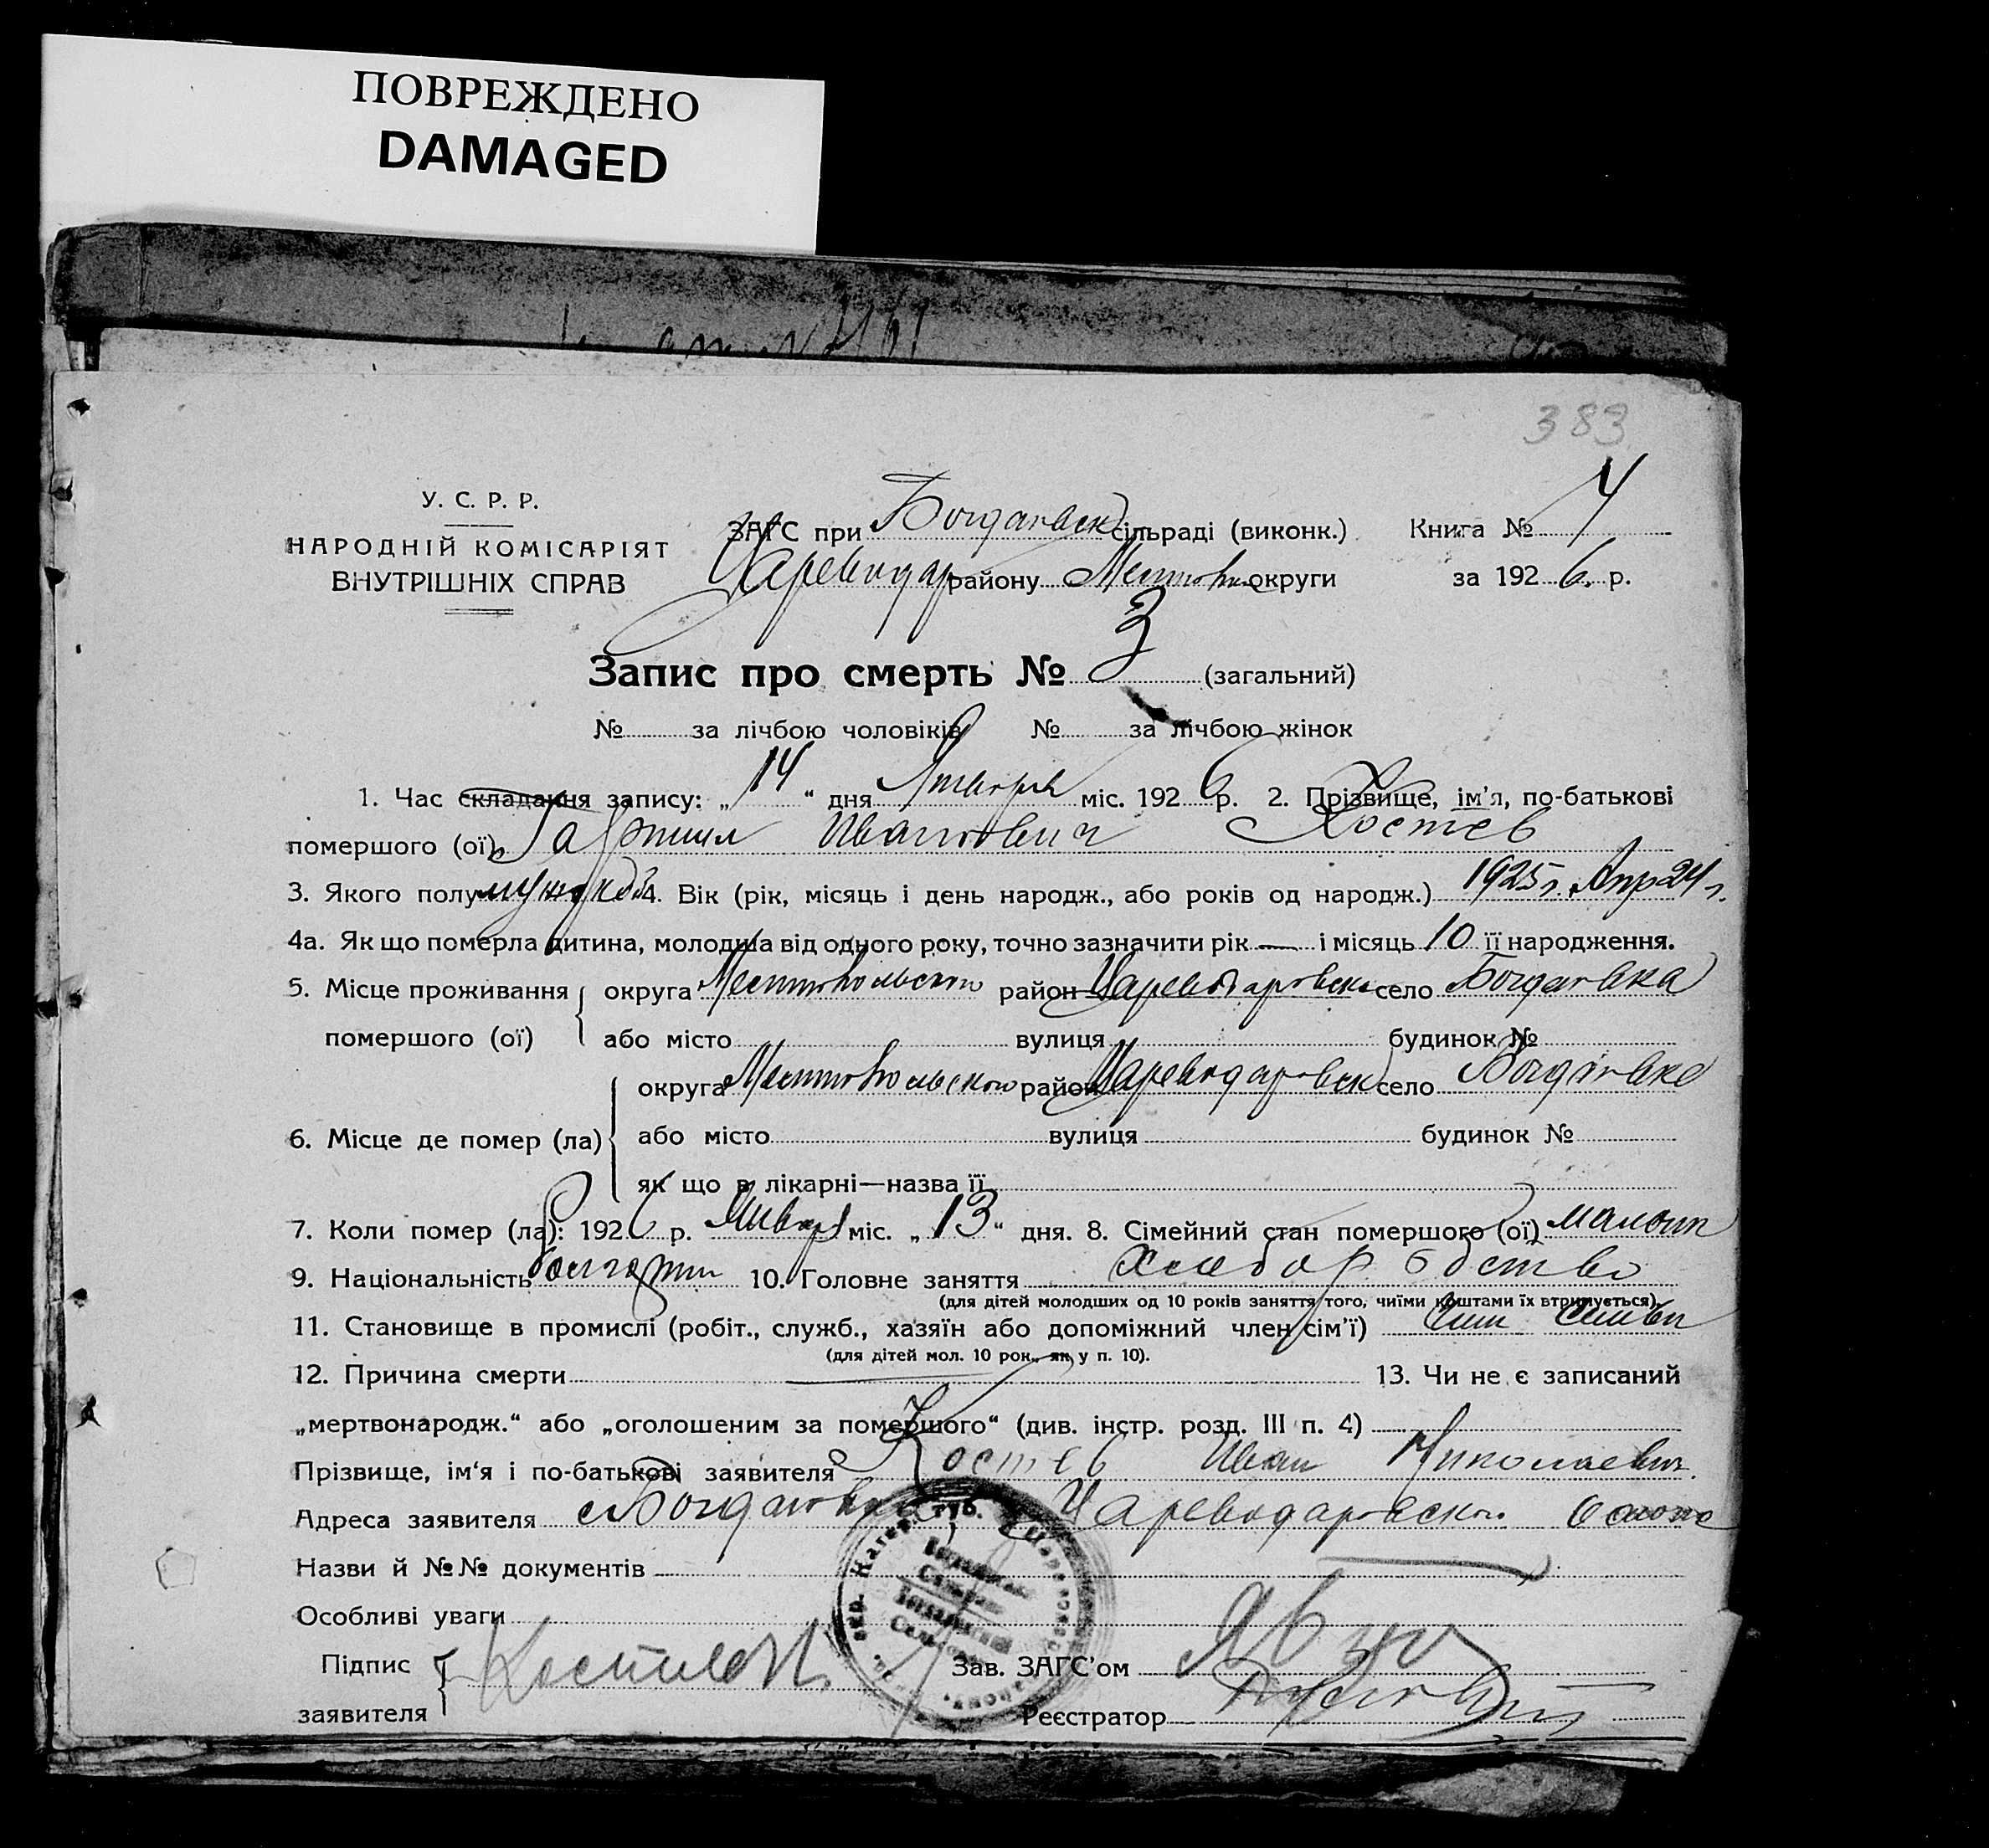 ПОВРЕЖДЕНО
DAMAGED
383
У. С. Р. Р.
НАРОДНІЙ КОМІСАРІЯТ
ВНУТРІШНІХ СПРАВ
ЗАГС при Богдановск сільраді (виконк.) Книга № 4
Цареводар району округи за 1926 р.
Запис про смерть № 3 (загальний)
№ за лічбою чоловіків № за лічбою жінок
1. Час складання запису: „14“ дня Января міс. 1926 р. 2. Прізвище, ім'я, по-батькові
помершого (ої) Иванович Костев
3. Якого полу мужск 4. Вік (рік, місяць і день народж., або років од народж.) 1925 г. Апр 24 г.
4а. Як що померла дитина, молодша від одного року, точно зазначити рік — і місяць 10 її народження.
5. Місце проживання округа Мелитопольского район Цареводаровск село Богдановка
помершого (ої) або місто вулиця будинок №
округа Мелитопольского район Цареводаровск село Богдановке
6. Місце де помер (ла) або місто вулиця будинок №
як що в лікарні—назва її
7. Коли помер (ла): 1926 р. Январ міс. „13“ дня. 8. Сімейний стан помершого (ої)
9. Національність 10. Головне заняття хлеборобство
(для дітей молодших од 10 років заняття того, чиїми коштами їх втримується).
11. Становище в промислі (робіт., служб., хазяїн або допоміжний член сім'ї) член семьи
(для дітей мол. 10 рок., як у п. 10).
12. Причина смерти 13. Чи не є записаний
„мертвонародж.“ або „оголошеним за помершого“ (див. інстр. розд. III п. 4)
Прізвище, ім'я і по-батькові заявителя Костев Иван Николаевич
Адреса заявителя с Богдановка Цареводаровского
Назви й №№ документів
Особливі уваги
Підпис Зав. ЗАГС'ом
заявителя Реєстратор